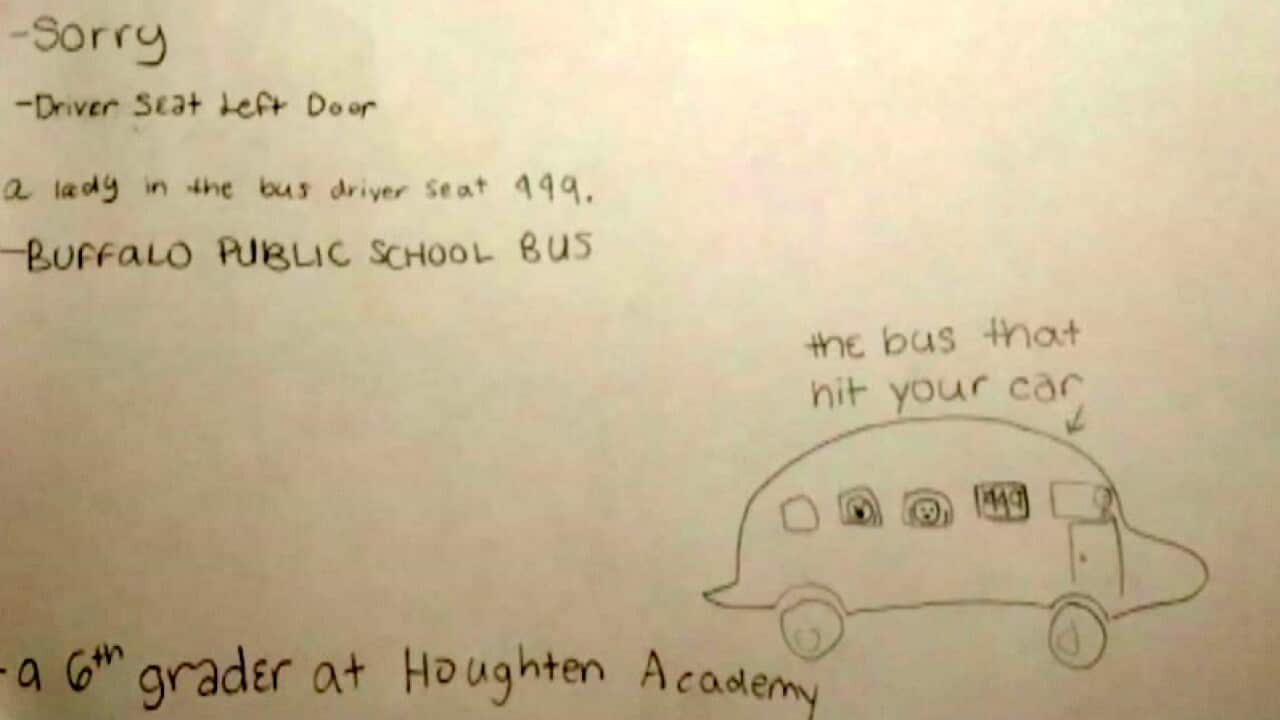 -Sorry
-Driver Seat Left Door
a lady in the bus driver seat 449.
-BUFFALO PUBLIC SCHOOL BUS
the bus that
hit your car
449
-a 6th grader at Houghten Academy